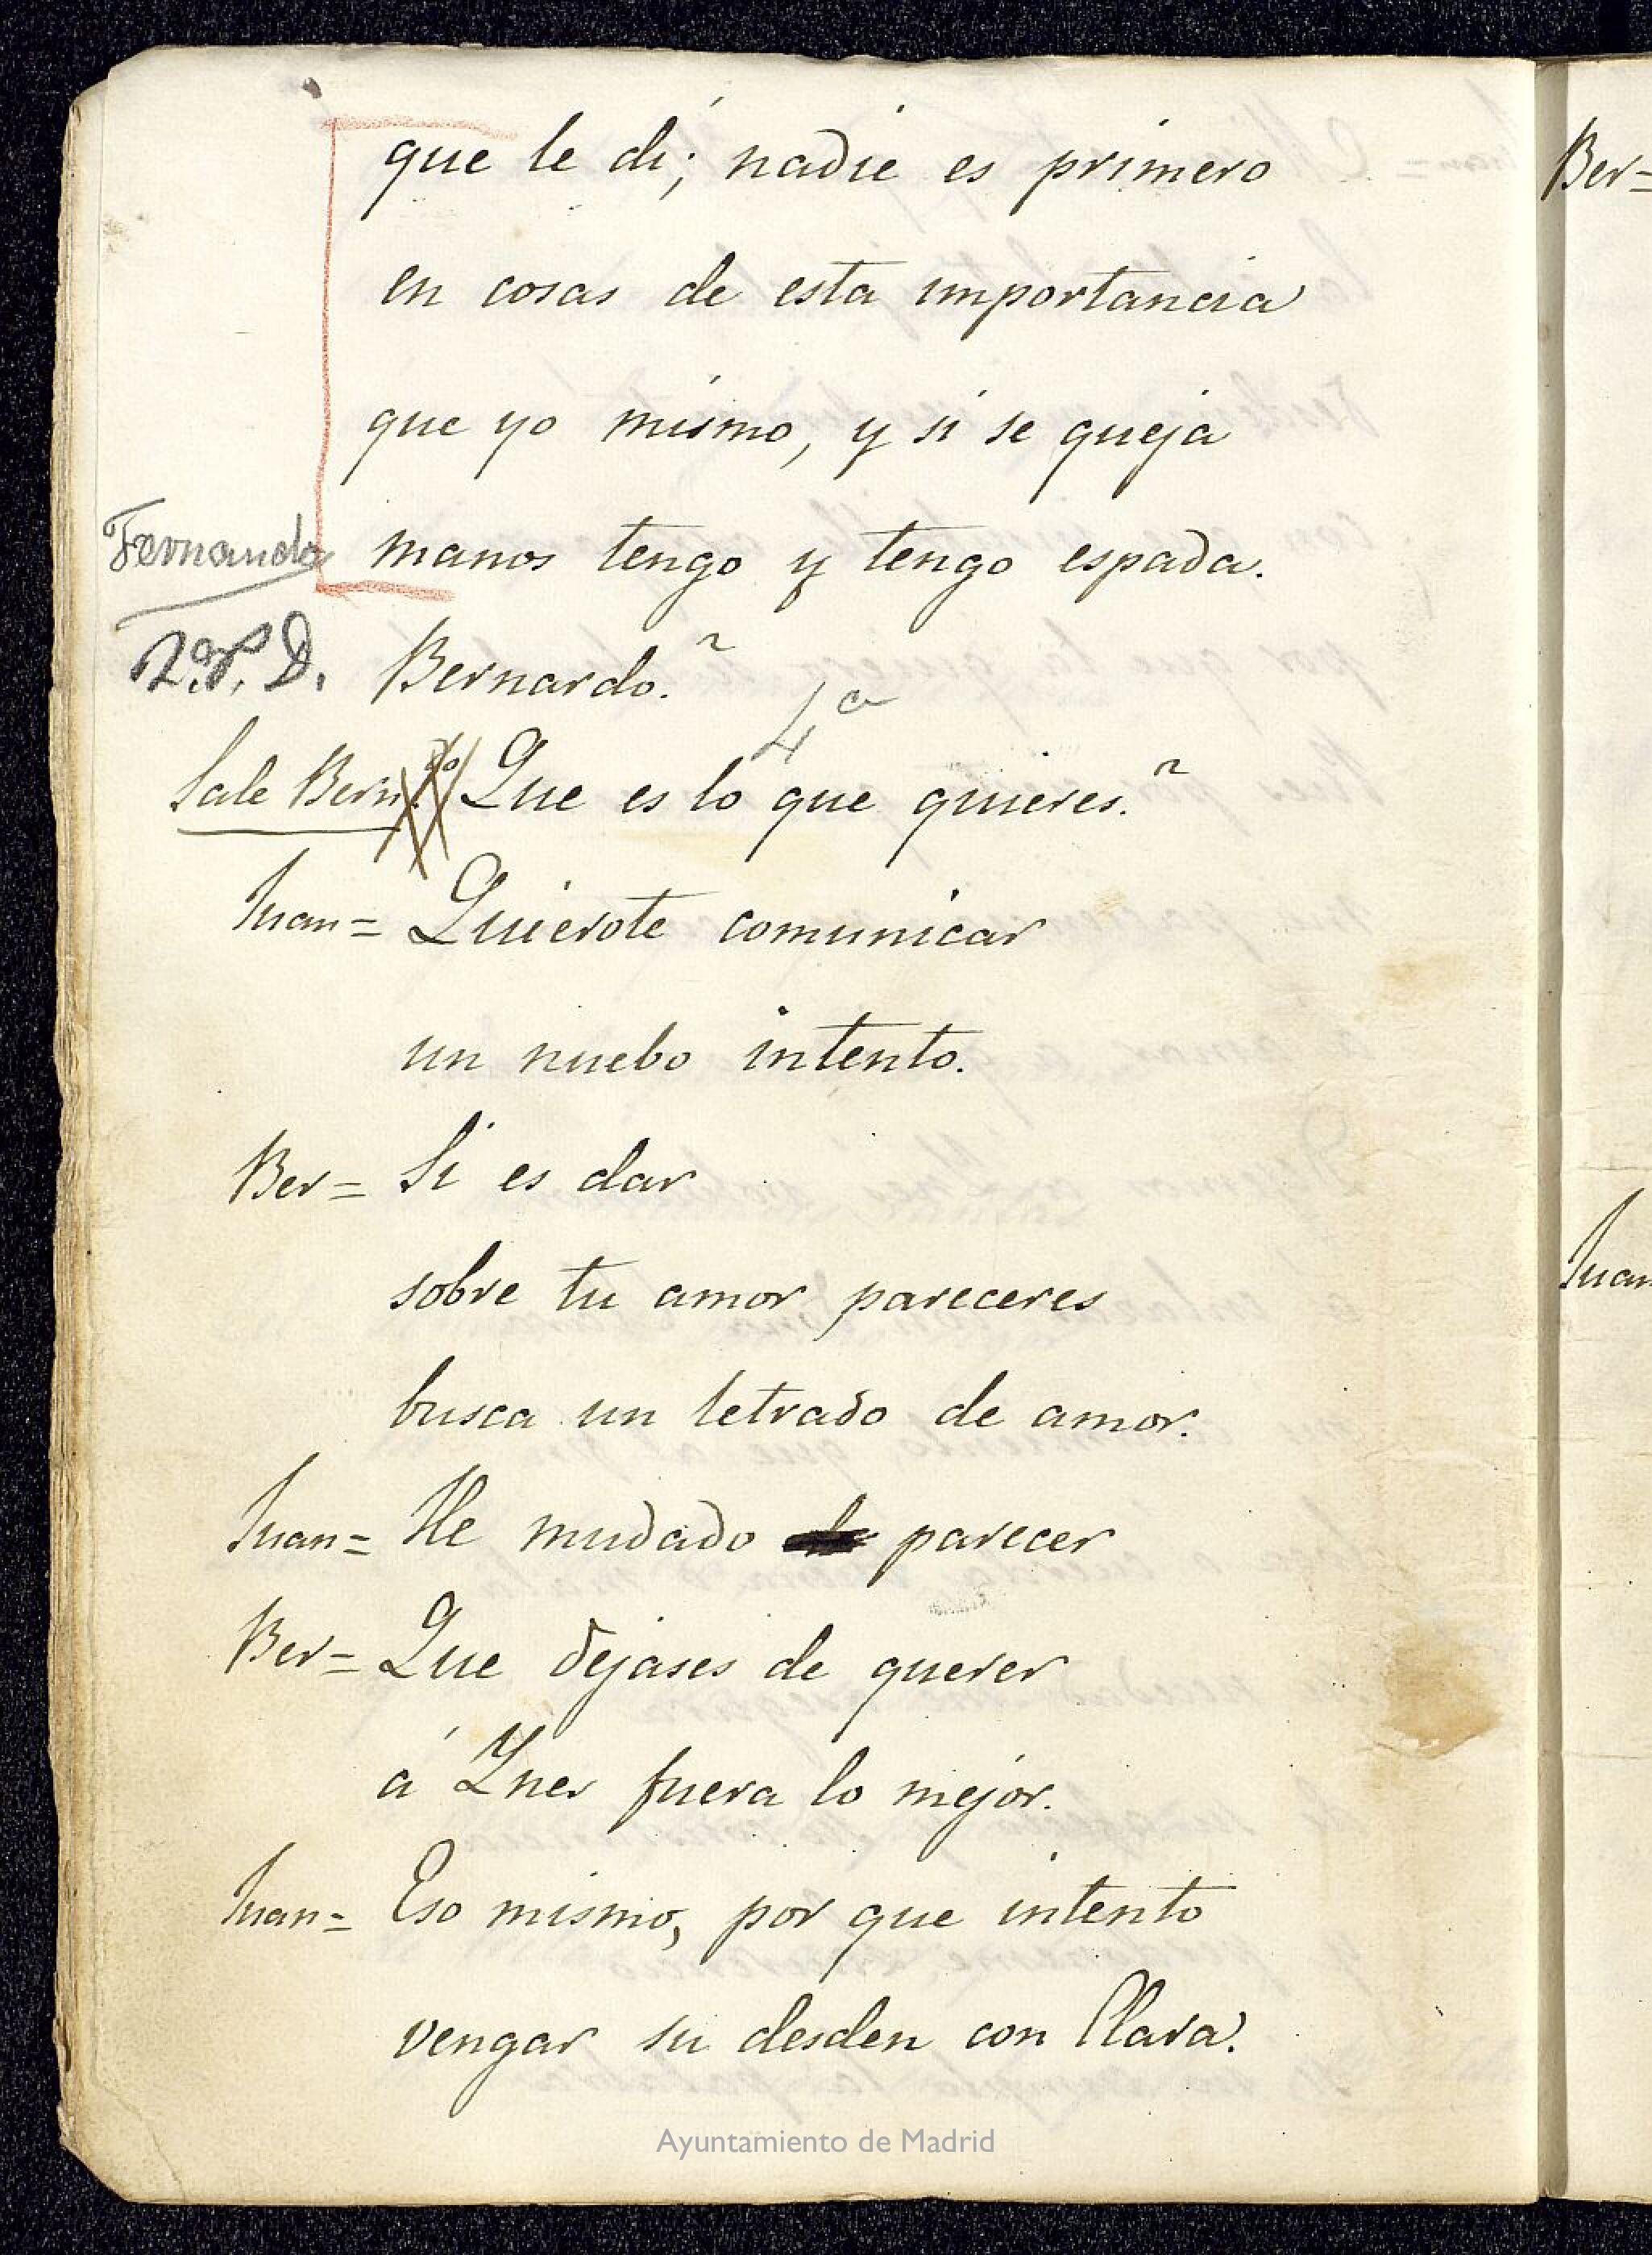 que le dí; nadie es primero
en cosas de esta importancia
que yo mismo, y si se queja
Fernando manos tengo y tengo espada.
Bernardo.?
4ª
Sale Bern.do Que es lo que quieres.?
Juan= Quierote comunicar
un nuebo intento.
Ber= Si es dar
sobre tu amor pareceres
busca un letrado de amor.
Juan= He mudado parecer
Ber= Que dejases de querer
á Ynes fuera lo mejor.
Juan= Eso mismo, por que intento
vengar su desden con Clara.
Ayuntamiento de Madrid
Ber=
Juan